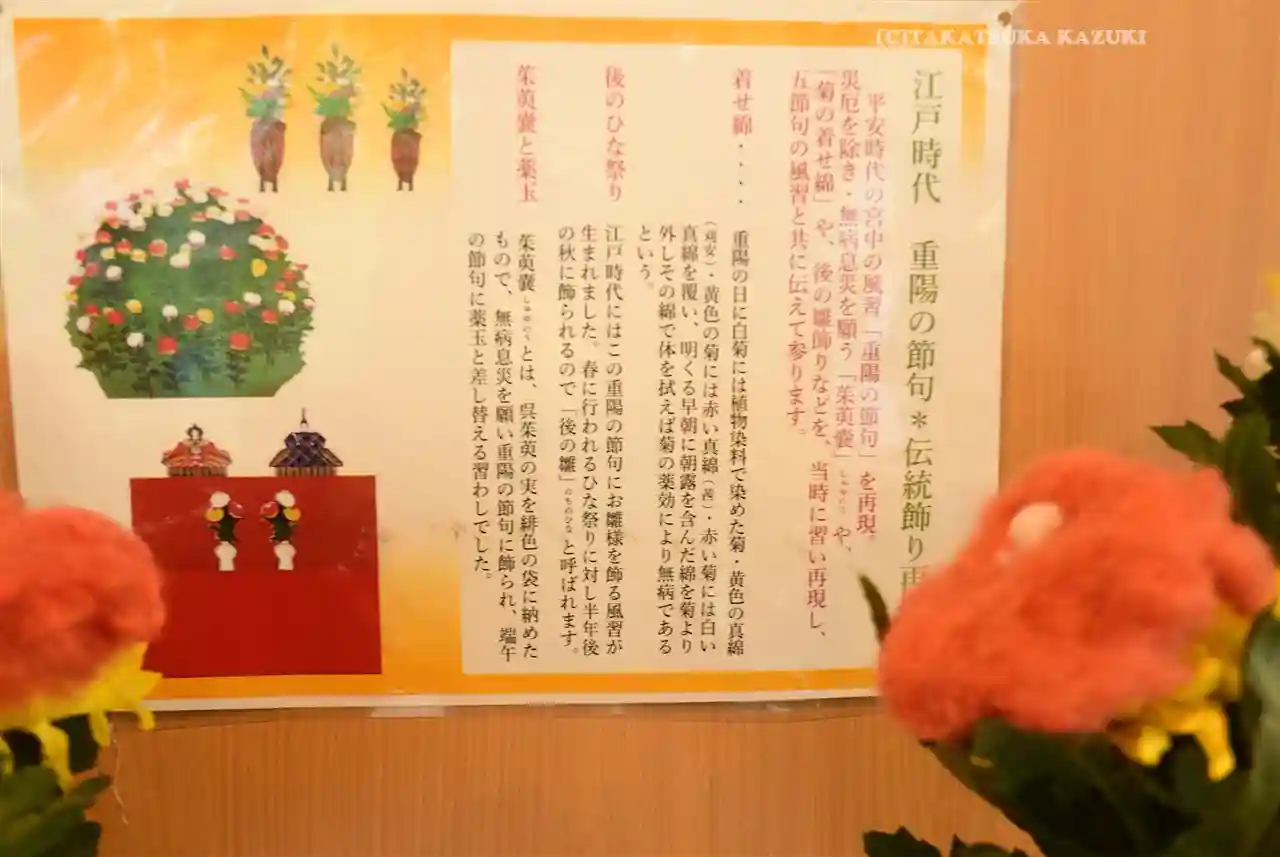 (C)TAKATSUKA KAZUKI
江戸時代 重陽の節句＊伝統飾り再
平安時代の宮中の風習「重陽の節句」を再現。
災厄を除き・無病息災を願う「茱萸嚢」や、
「菊の着せ綿」や、後の雛飾りなどを、当時に習い再現し、
五節句の風習と共に伝えて参ります。
着せ綿・・・・
重陽の日に白菊には植物染料で染めた菊・黄色の真綿
（刈安）・黄色の菊には赤い真綿（茜）・赤い菊には白い
真綿を覆い、明くる早朝に朝露を含んだ綿を菊より
外しその綿で体を拭えば菊の薬効により無病である
という。
後のひな祭り
江戸時代にはこの重陽の節句にお雛様を飾る風習が
生まれました。春に行われるひな祭りに対し半年後
の秋に飾られるので「後の雛」のちのひな と呼ばれます。
茱萸嚢と薬玉
茱萸嚢 しゅゆのう とは、呉茱萸の実を緋色の袋に納めた
もので、無病息災を願い重陽の節句に飾られ、端午
の節句に薬玉と差し替える習わしでした。